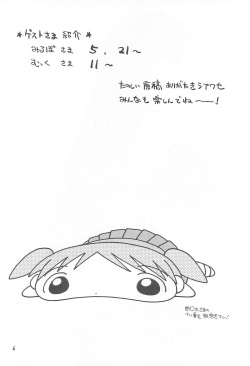 ＊ゲストさま紹介＊
みるぽ さま 5、21〜
むっく さま 11〜
たのしい原稿 ありがたきシアワセ
みんなも楽しんでねー！
6